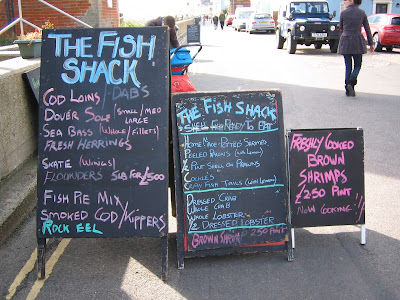 The Fish
Shack
Cod Loins / Dab's
Dover Sole (Small/Med
Large
Sea Bass (Whole/Fillets)
Fresh Herrings
Skate (Wings)
Flounders 5lb for £500
Fish Pie Mix
Smoked Cod/Kippers
Rock Eel
The Fish Shack
Shell Fish Ready To Eat
Home Made Potted Shrimps
Peeled Prawns
½ Pint Shell on Prawns
Cockles
Cray Fish Tails
Dressed Crab
Whole Crab
Whole Lobster
½ Dressed Lobster
Brown Shrimp 250 Pint
Freshly Cooked
Brown
Shrimps
£250 Pint
Now Cooking!